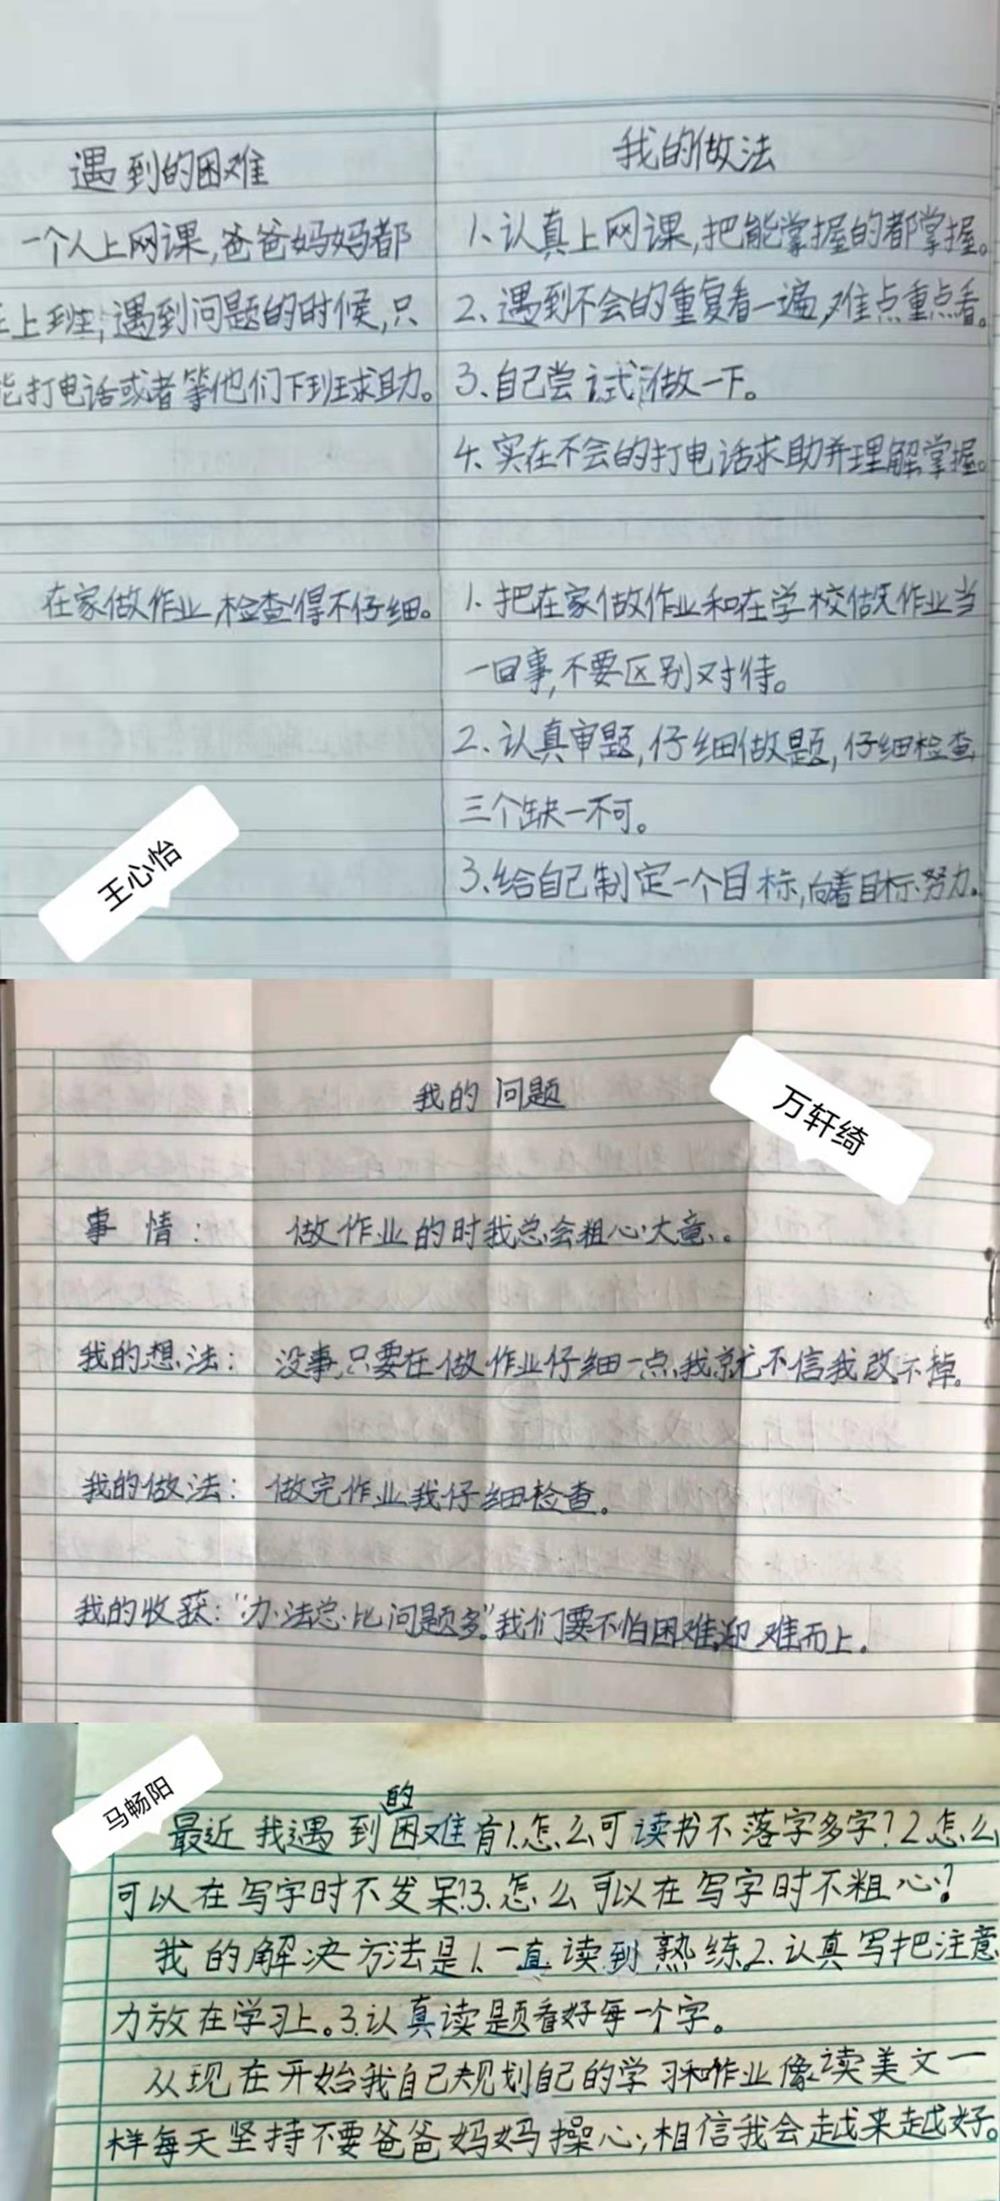 遇到的困难
一个人上网课,爸爸妈妈都
上班,遇到问题的时候,只
能打电话或者等他们下班求助。
在家做作业,检查得不仔细。
我的做法
1、认真上网课,把能掌握的都掌握。
2、遇到不会的重复看一遍,难点重点看。
3、自己尝试做一下。
4、实在不会的打电话求助并理解掌握。
1、把在家做作业和在学校做作业当
一回事,不要区别对待。
2、认真审题,仔细做题,仔细检查
三个缺一不可。
3、给自己制定一个目标,向着目标努力。
王心怡
万轩绮
我的问题
事情: 做作业的时我总会粗心大意。
我的想法: 没事,只要在做作业仔细一点,我就不信我改不掉。
我的做法: 做完作业我仔细检查。
我的收获:“办法总比问题多”。我们要不怕困难,迎难而上。
马畅阳
最近我遇到的困难有1.怎么可读书不落字多字?2.怎么
可以在写字时不发呆?3.怎么可以在写字时不粗心?
我的解决方法是1.一直读到熟练。2.认真写把注意
力放在学习上。3.认真读题看好每一个字。
从现在开始我自己规划自己的学习和作业像读美文一
样每天坚持不要爸爸妈妈操心,相信我会越来越好。